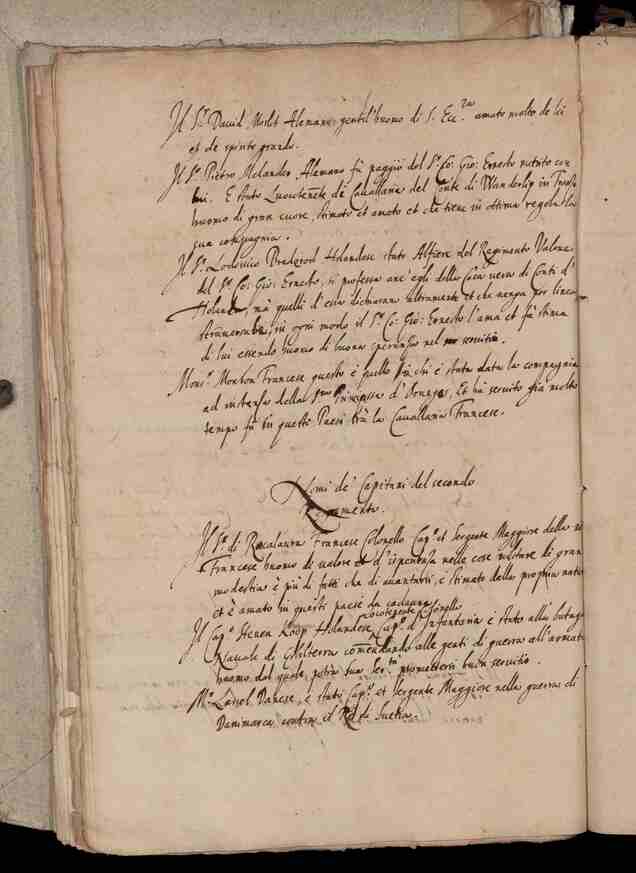 Il S.r Dauid Morlit Alemano gentil'huomo di S. Ecc.za amato molto da lei
et di spirito grande.
Il S.r Pietro Melander Alemano fù paggio del S.r Co: Gio: Ernesto nutrito con
lui. È stato Luocoten.te di Cauallaria del Conte di Wanderlip in
huomo di gran cuore, stimato et amato et che tiene in ottima regola la
sua compagnia.
Il S.r Lodouico Bredrood Holandese stato Alfiere del Regimento Valone
del S.r Co: Gio: Ernesto, si professa anc'egli della Casa uera di Conti d'
Holanda, mà quelli d'essa dichiarano altramente et che uenga per linea
in ogni modo il S.r Co: Gio: Ernesto l'ama et fà stima
di lui essendo huomo di buona nel seruitio.
Mons.r Monbon Francese questo è quello à chi è stata data la compagnia
ad instanza della S.ra Principessa d'Oranges, Et hà seruito già molto
tempo fà in questi Paesi trà la Cauallaria Francese.
Nomi de' Capitani del secondo
Regimento.
Il S.r di Rocalaura Francese Colonello Cap.o et Sergente Maggiore della
Francese huomo di ualore et d'isperienza nelle cose militare di gran
modestia è più di fatti che di uantarsi, e stimato dalla propria
et è amato in questi paesi da cadauno
locotenente Colonello
Il Cap.o Steuen Koop Holandese Cap.o d'Infantaria è stato alla
Nauale di comandando alle genti di guerra
huomo dal quale potrà sua Ser.tà promettersi buon seruitio.
M.r Danese, è stato Cap.o et Sergente Maggiore nella guerra di
Danimarca contra il Rè di Suetia.